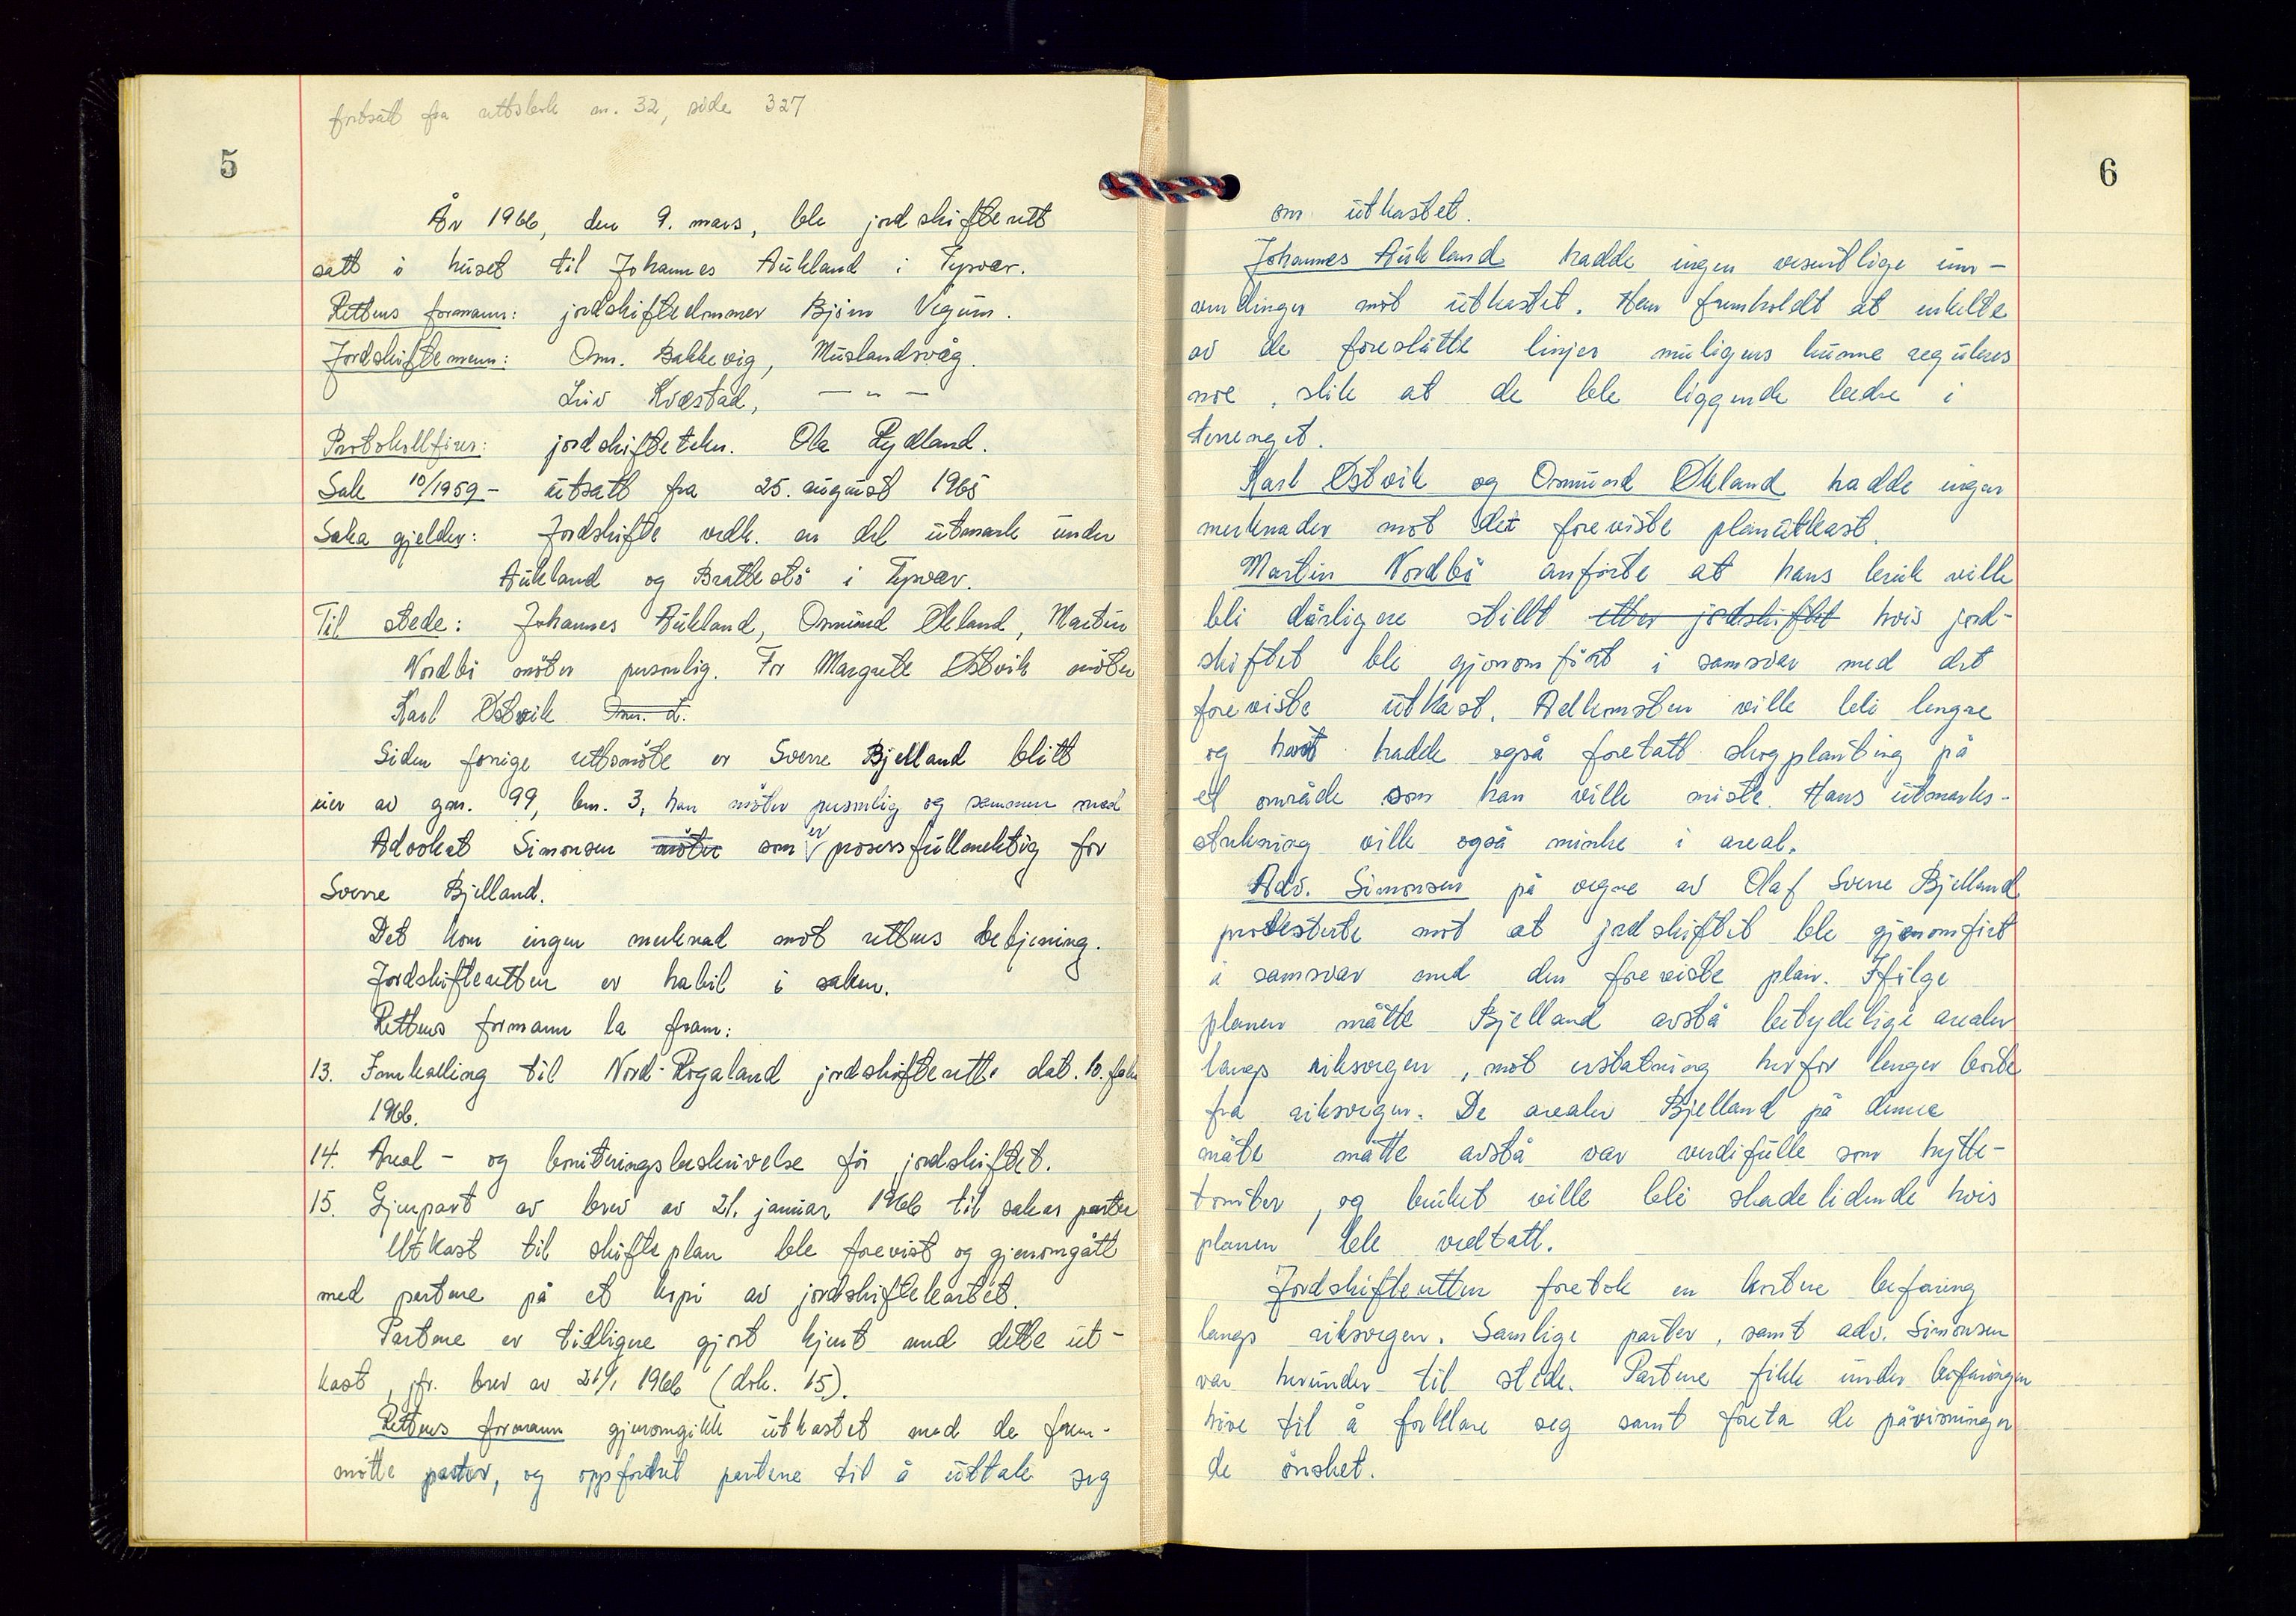 fortsatt fra rettsbok nr. 32, side 327
5
År 1966, den 9. mars, ble jordskifterett
satt i huset til Johannes Aukland i Tysvær.
Rettens formann: jordskiftedommer Bjørn Vegum.
Jordskiftemenn: Osm. Bakkevig, Muslandsvåg.
Liv Kvæstad, — " —
Protokollfører: jordskiftetekn. Ola Rydland.
Sak 10/1959 - utsatt fra 25. august 1965
Saka gjelder: Jordskifte vedk. en del utmark under
Aukland og Brattestø i Tysvær.
Til stede: Johannes Aukland, Osmund Økland, Martin
Nordbø møter personlig. For Margrete Østvik møter
Karl Østvik
Siden forrige rettsmøte er Sverre Bjelland blitt
eier av gnr. 99, bnr. 3, han møter personlig og sammen med
Advokat Simonsen møter som er prosessfullmektig for
Sverre Bjelland.
Det kom ingen merknad mot rettens betjening.
Jordskifteretten er habil i saken.
Rettens formann la fram:
13. Innkalling til Nord-Rogaland jordskifterett dat. 10. febr
1966.
14. Areal- og boniteringsbeskrivelse før jordskiftet.
15. Gjenpart av brev av 21. januar 1966 til sakas parter
Utkast til skifteplan ble forevist og gjennomgått
med partene på et kopi av jordskiftekartet.
Partene er tidligere gjort kjent med dette ut-
kast, jfr. brev av 21/1 1966 (dok. 15).
Rettens formann gjennomgikk utkastet med de frem-
møtte parter, og oppfordret partene til å uttale seg
6
om utkastet.
Johannes Aukland hadde ingen vesentlige inn-
vendinger mot utkastet. Han fremholdt at enkelte
av de foreslåtte linjer muligens kunne reguleres
noe, slik at de ble liggende bedre i
terrenget.
Karl Østvik og Osmund Økland hadde ingen
merknader mot det foreviste planutkast.
Martin Nordbø anførte at hans bruk ville
bli dårligere stillt etter jordskiftet hvis jord-
skiftet ble gjennomført i samsvar med det
foreviste utkast. Adkomsten ville bli lengre
og han hadde også foretatt skogplanting på
et område som han ville miste. Hans utmarks-
strekning ville også minke i areal.
Adv. Simonsen på vegne av Olaf Sverre Bjelland
protesterte mot at jordskiftet ble gjennomført
i samsvar med den foreviste plan. Ifølge
planen måtte Bjelland avstå betydelige arealer
langs riksvegen, mot erstatning herfor lenger borte
fra riksvegen. De arealer Bjelland på denne
måte måtte avstå var verdifulle som hytte-
tomter, og bruket ville bli skadelidende hvis
planen ble vedtatt.
Jordskifteretten foretok en kortere befaring
langs riksvegen. Samlige parter, samt adv. Simonsen
var herunder til stede. Partene fikk under befaringen
høve til å forklare seg samt foreta de påvisninger
de ønsket.